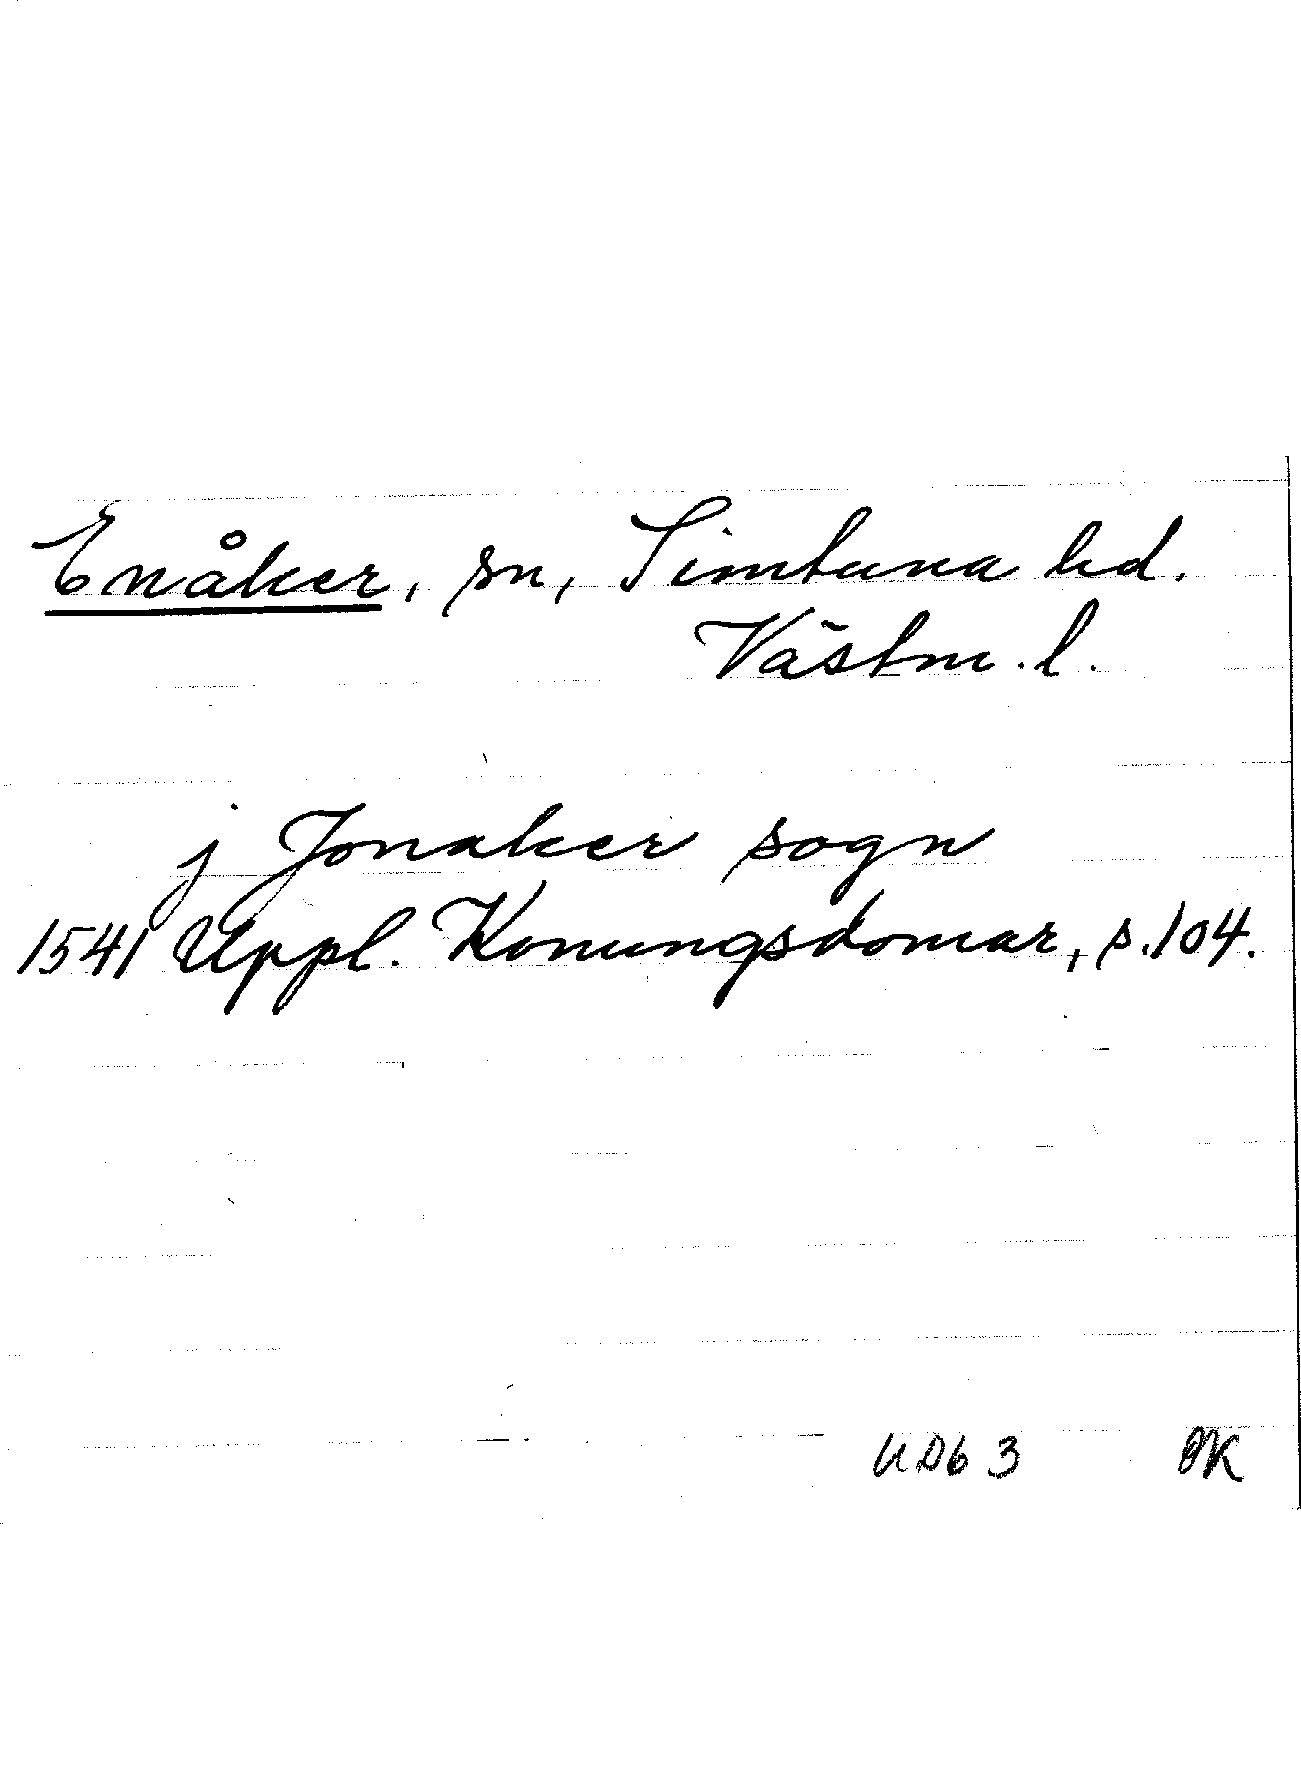 Enåker, sn, Simtuna hd.
Västm. l.
j Jonaker sogn
1541 Uppl. Konungsdomar, s. 104.
UDb 3 ÖK